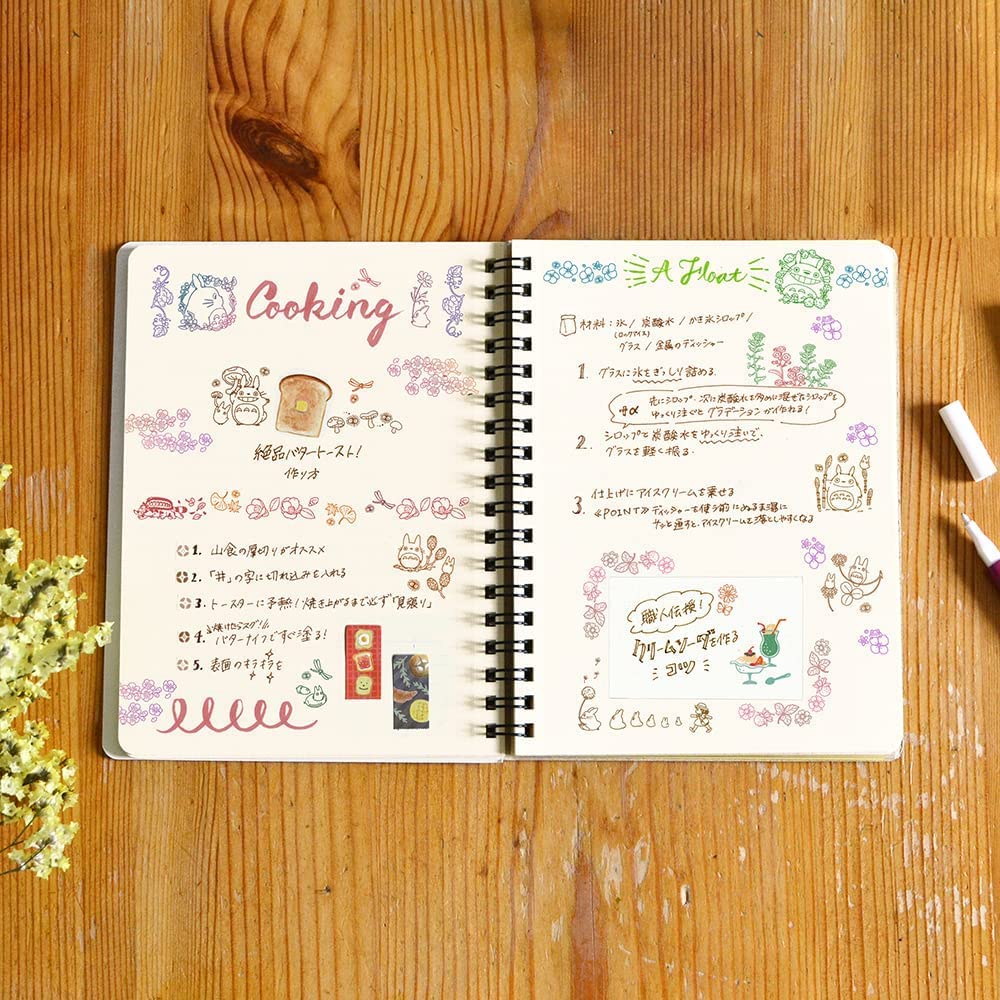 Cooking
絶品バタートースト!
作り方
1. 山食の厚切りがオススメ
2. 「井」の字に切れ込みを入れる
3. トースターに予熱!焼き上がるまで必ず「見張り」
焼けたらスグ!!
4. バターナイフですぐ塗る!
5. 表面のキラキラを
A Float
材料:氷/炭酸水/かき氷シロップ/
(ロックアイス)
グラス/金属のディッシャー
1. グラスに氷をぎっしり詰める.
先にシロップ・次に炭酸水を多めに混ぜたシロップを
+α ゆっくり注ぐとグラデーションが作れる!
2. シロップと炭酸水をゆっくり注いで、
グラスを軽く振る.
3. 仕上げにアイスクリームを乗せる
≪POINT≫ディッシャーを使う前にぬるま湯に
サッと通すと、アイスクリームを落としやすくなる
職人伝授!
クリームソーダを作る
コツ